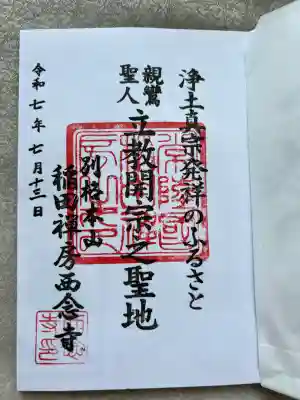 浄土真宗発祥のふるさと
親鸞聖人 立教開宗之聖地
別格本山
稲田禅房西念寺
令和七年七月十三日